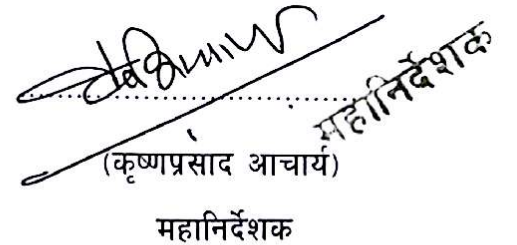 महानिर्देशक
(कृष्णप्रसाद आचार्य)
महानिर्देशक